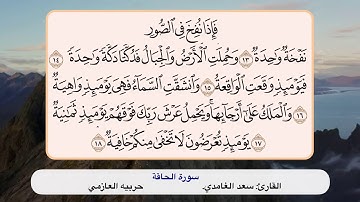 فَإِذَا نُفِخَ فِي ٱلصُّورِ
نَفْخَةٌ وَٰحِدَةٌ ١٣ وَحُمِلَتِ ٱلْأَرْضُ وَٱلْجِبَالُ فَدُكَّتَا دَكَّةً وَٰحِدَةً ١٤
فَيَوْمَئِذٍ وَقَعَتِ ٱلْوَاقِعَةُ ١٥ وَٱنشَقَّتِ ٱلسَّمَآءُ فَهِىَ يَوْمَئِذٍ وَاهِيَةٌ ١٦
وَٱلْمَلَكُ عَلَىٰٓ أَرْجَآئِهَا وَيَحْمِلُ عَرْشَ رَبِّكَ فَوْقَهُمْ يَوْمَئِذٍ ثَمَٰنِيَةٌ ١٧
يَوْمَئِذٍ تُعْرَضُونَ لَا تَخْفَىٰ مِنكُمْ خَافِيَةٌ ١٨
سورة الحاقة
القارئ: سعد الغامدي. حربيه العازمي